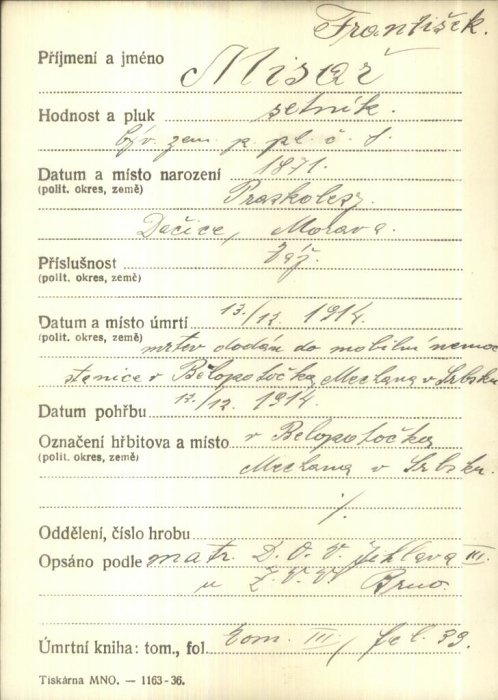 František.
Příjmení a jméno Misař
Hodnost a pluk setník.
býv. zem. p. pl. č. 1.
Datum a místo narození 1871.
(polit. okres, země) Praskolesy
Dačice, Morava.
Příslušnost táž.
(polit. okres, země)
Datum a místo úmrtí 13./12. 1914.
(polit. okres, země) mrtev dodán do mobilní nemoc
stenice v Bělopotočka Mechana v Srbsku
Datum pohřbu 13./12. 1914.
Označení hřbitova a místo v Belopotočka
(polit. okres, země) Mechana v Srbsku.
Oddělení, číslo hrobu /.
Opsáno podle matr. D. O. V. Jihlava III.
u Z. V. V. Brno.
Úmrtní kniha: tom., fol. tom. III, fol. 39.
Tiskárna MNO. — 1163-36.